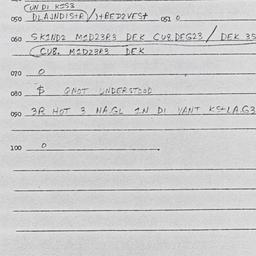 (UN DI KIS3
050 DLAJNDISTR)/)+BED2VES+ 051 0
060 SKIND2 M1D23R3 DEK CU8.DEG23/ DEK 35
(CU8. M1D23R3 DEK
070 0
080 $ (NOT UNDERSTOOD
090 3R HOT 3 NA.GL IN DI VANT KS+LA.G3
100 0